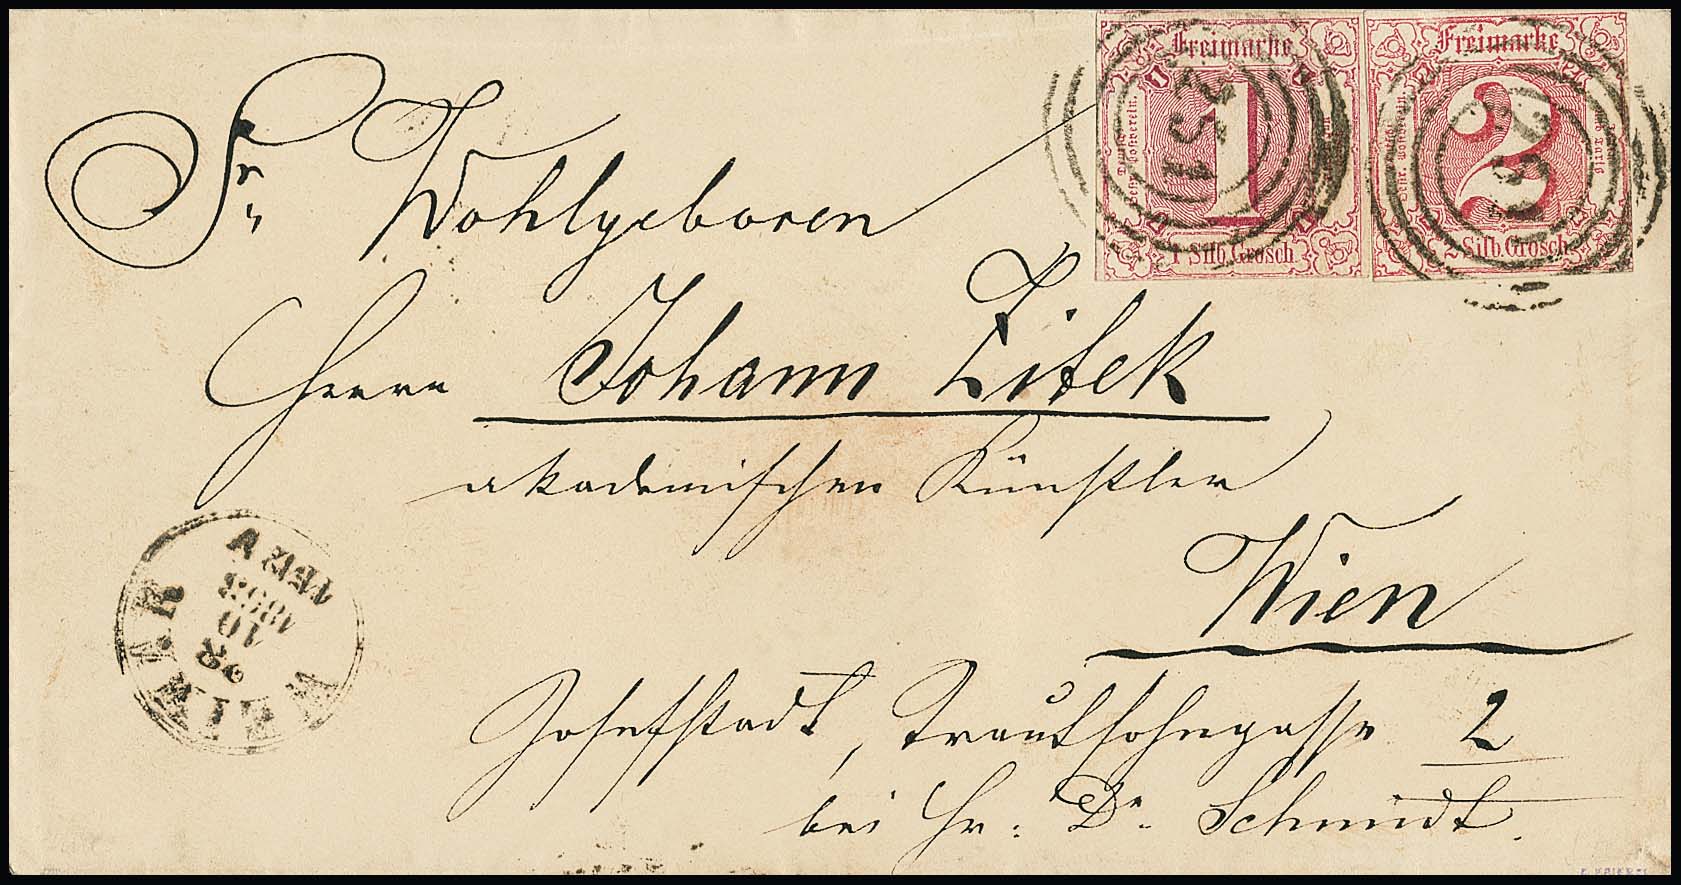 Freimarke
1 Silb. Grosch
Freimarke
2
2 Silb. Grosch
252
Sr. Wohlgeboren
Herrn Johann Zitek
akademischen Künstler
Wien
Josefstadt, Trautsohngasse 2
bei Hr: Dr. Schmidt.
WEIMAR
10